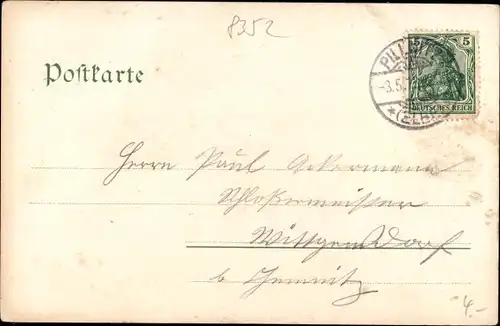 8352
Postkarte
5 5
DEUTSCHES REICH
-3.5.
*(ELBE)
Herrn Paul Ackermann
Schloßermeister
Wittgensdorf
b. Chemnitz
4.-